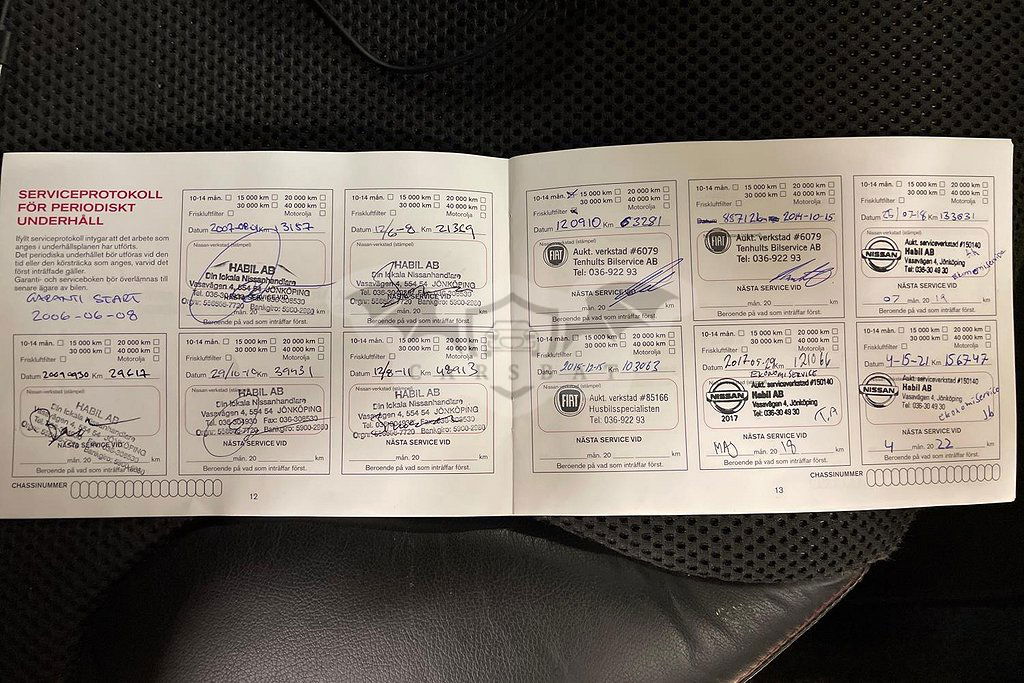 SERVICEPROTOKOLL
FÖR PERIODISKT
UNDERHÅLL
Ifyllt serviceprotokoll intygar att det arbete som
anges i underhållsplanen har utförts.
Det periodiska underhållet bör utföras vid den
tid eller den körsträcka som anges, varvid det
först inträffade gäller.
Garanti- och serviceboken bör överlämnas till
senare ägare av bilen.
GARANTI START
2006-06-08
10-14 mån. 15 000 km 20 000 km
30 000 km 40 000 km
Friskluftfilter Motorolja
Datum Km 13157
Nissan-verkstad (stämpel)
HABIL AB
Din lokala Nissanhandlare
Vasavägen 4, 554 54 JÖNKÖPING
NÄSTA SERVICE VID
mån. 20 km
Beroende på vad som inträffar först.
10-14 mån. 15 000 km 20 000 km
30 000 km 40 000 km
Friskluftfilter Motorolja
Datum 12/6-8. Km 21329
Nissan-verkstad (stämpel)
HABIL AB
Din lokala Nissanhandlare
Vasavägen 4, 554 54 JÖNKÖPING
NÄSTA SERVICE VID
mån. 20 km
Beroende på vad som inträffar först.
10-14 mån. 15 000 km 20 000 km
30 000 km 40 000 km
Friskluftfilter Motorolja
Datum 20090930 Km 29617
HABIL AB
Din lokala Nissanhandlare
Vasavägen 4, 554 54 JÖNKÖPING
NÄSTA SERVICE VID
mån. 20 km
Beroende på vad som inträffar först.
10-14 mån. 15 000 km 20 000 km
30 000 km 40 000 km
Friskluftfilter Motorolja
Datum 29/10-10 Km 39431
HABIL AB
Din lokala Nissanhandlare
Vasavägen 4, 554 54 JÖNKÖPING
NÄSTA SERVICE VID
mån. 20 km
Beroende på vad som inträffar först.
10-14 mån. 15 000 km 20 000 km
30 000 km 40 000 km
Friskluftfilter Motorolja
Datum Km 48913
HABIL AB
Din lokala Nissanhandlare
Vasavägen 4, 554 54 JÖNKÖPING
NÄSTA SERVICE VID
mån. 20 km
Beroende på vad som inträffar först.
CHASSINUMMER
12
10-14 mån. 15 000 km 20 000 km
30 000 km 40 000 km
Friskluftfilter Motorolja
Datum 120910 Km 63281
Nissan-verkstad (stämpel)
FIAT
Aukt. verkstad #6079
Tenhults Bilservice AB
Tel: 036-922 93
NÄSTA SERVICE VID
mån. 20 km
Beroende på vad som inträffar först.
10-14 mån. 15 000 km 20 000 km
30 000 km 40 000 km
Friskluftfilter Motorolja
85712km 2014-10-15
Nissan-verkstad (stämpel)
FIAT
Aukt. verkstad #6079
Tenhults Bilservice AB
Tel: 036-922 93
NÄSTA SERVICE VID
mån. 20 km
Beroende på vad som inträffar först.
10-14 mån. 15 000 km 20 000 km
30 000 km 40 000 km
Friskluftfilter Motorolja
Datum Km 133631
NISSAN
Aukt. serviceverkstad #150140
Habil AB
Vasavägen 4, Jönköping
Tel: 036-30 49 30
NÄSTA SERVICE VID
07 mån. 20 19 km
Beroende på vad som inträffar först.
10-14 mån. 15 000 km 20 000 km
30 000 km 40 000 km
Friskluftfilter Motorolja
Datum 2015-12-15 Km 103063
Nissan-verkstad (stämpel)
FIAT
Aukt. verkstad #85166
Husbilsspecialisten
Tel: 036-922 93
NÄSTA SERVICE VID
mån. 20 km
Beroende på vad som inträffar först.
10-14 mån. 15 000 km 20 000 km
30 000 km 40 000 km
Friskluftfilter Motorolja
Datum 2017-05-19 Km 121066
EKONOMISERVICE
NISSAN
2017
Aukt. serviceverkstad #150140
Habil AB
Vasavägen 4, Jönköping
Tel: 036-30 49 30
NÄSTA SERVICE VID
MAJ mån. 20 18 km
Beroende på vad som inträffar först.
10-14 mån. 15 000 km 20 000 km
30 000 km 40 000 km
Friskluftfilter Motorolja
Datum 4-15-21 Km 156747
NISSAN
Aukt. serviceverkstad #150140
Habil AB
Vasavägen 4, Jönköping
Tel: 036-30 49 30
Ekonomiservice
NÄSTA SERVICE VID
4 mån. 20 22 km
Beroende på vad som inträffar först.
CHASSINUMMER
13